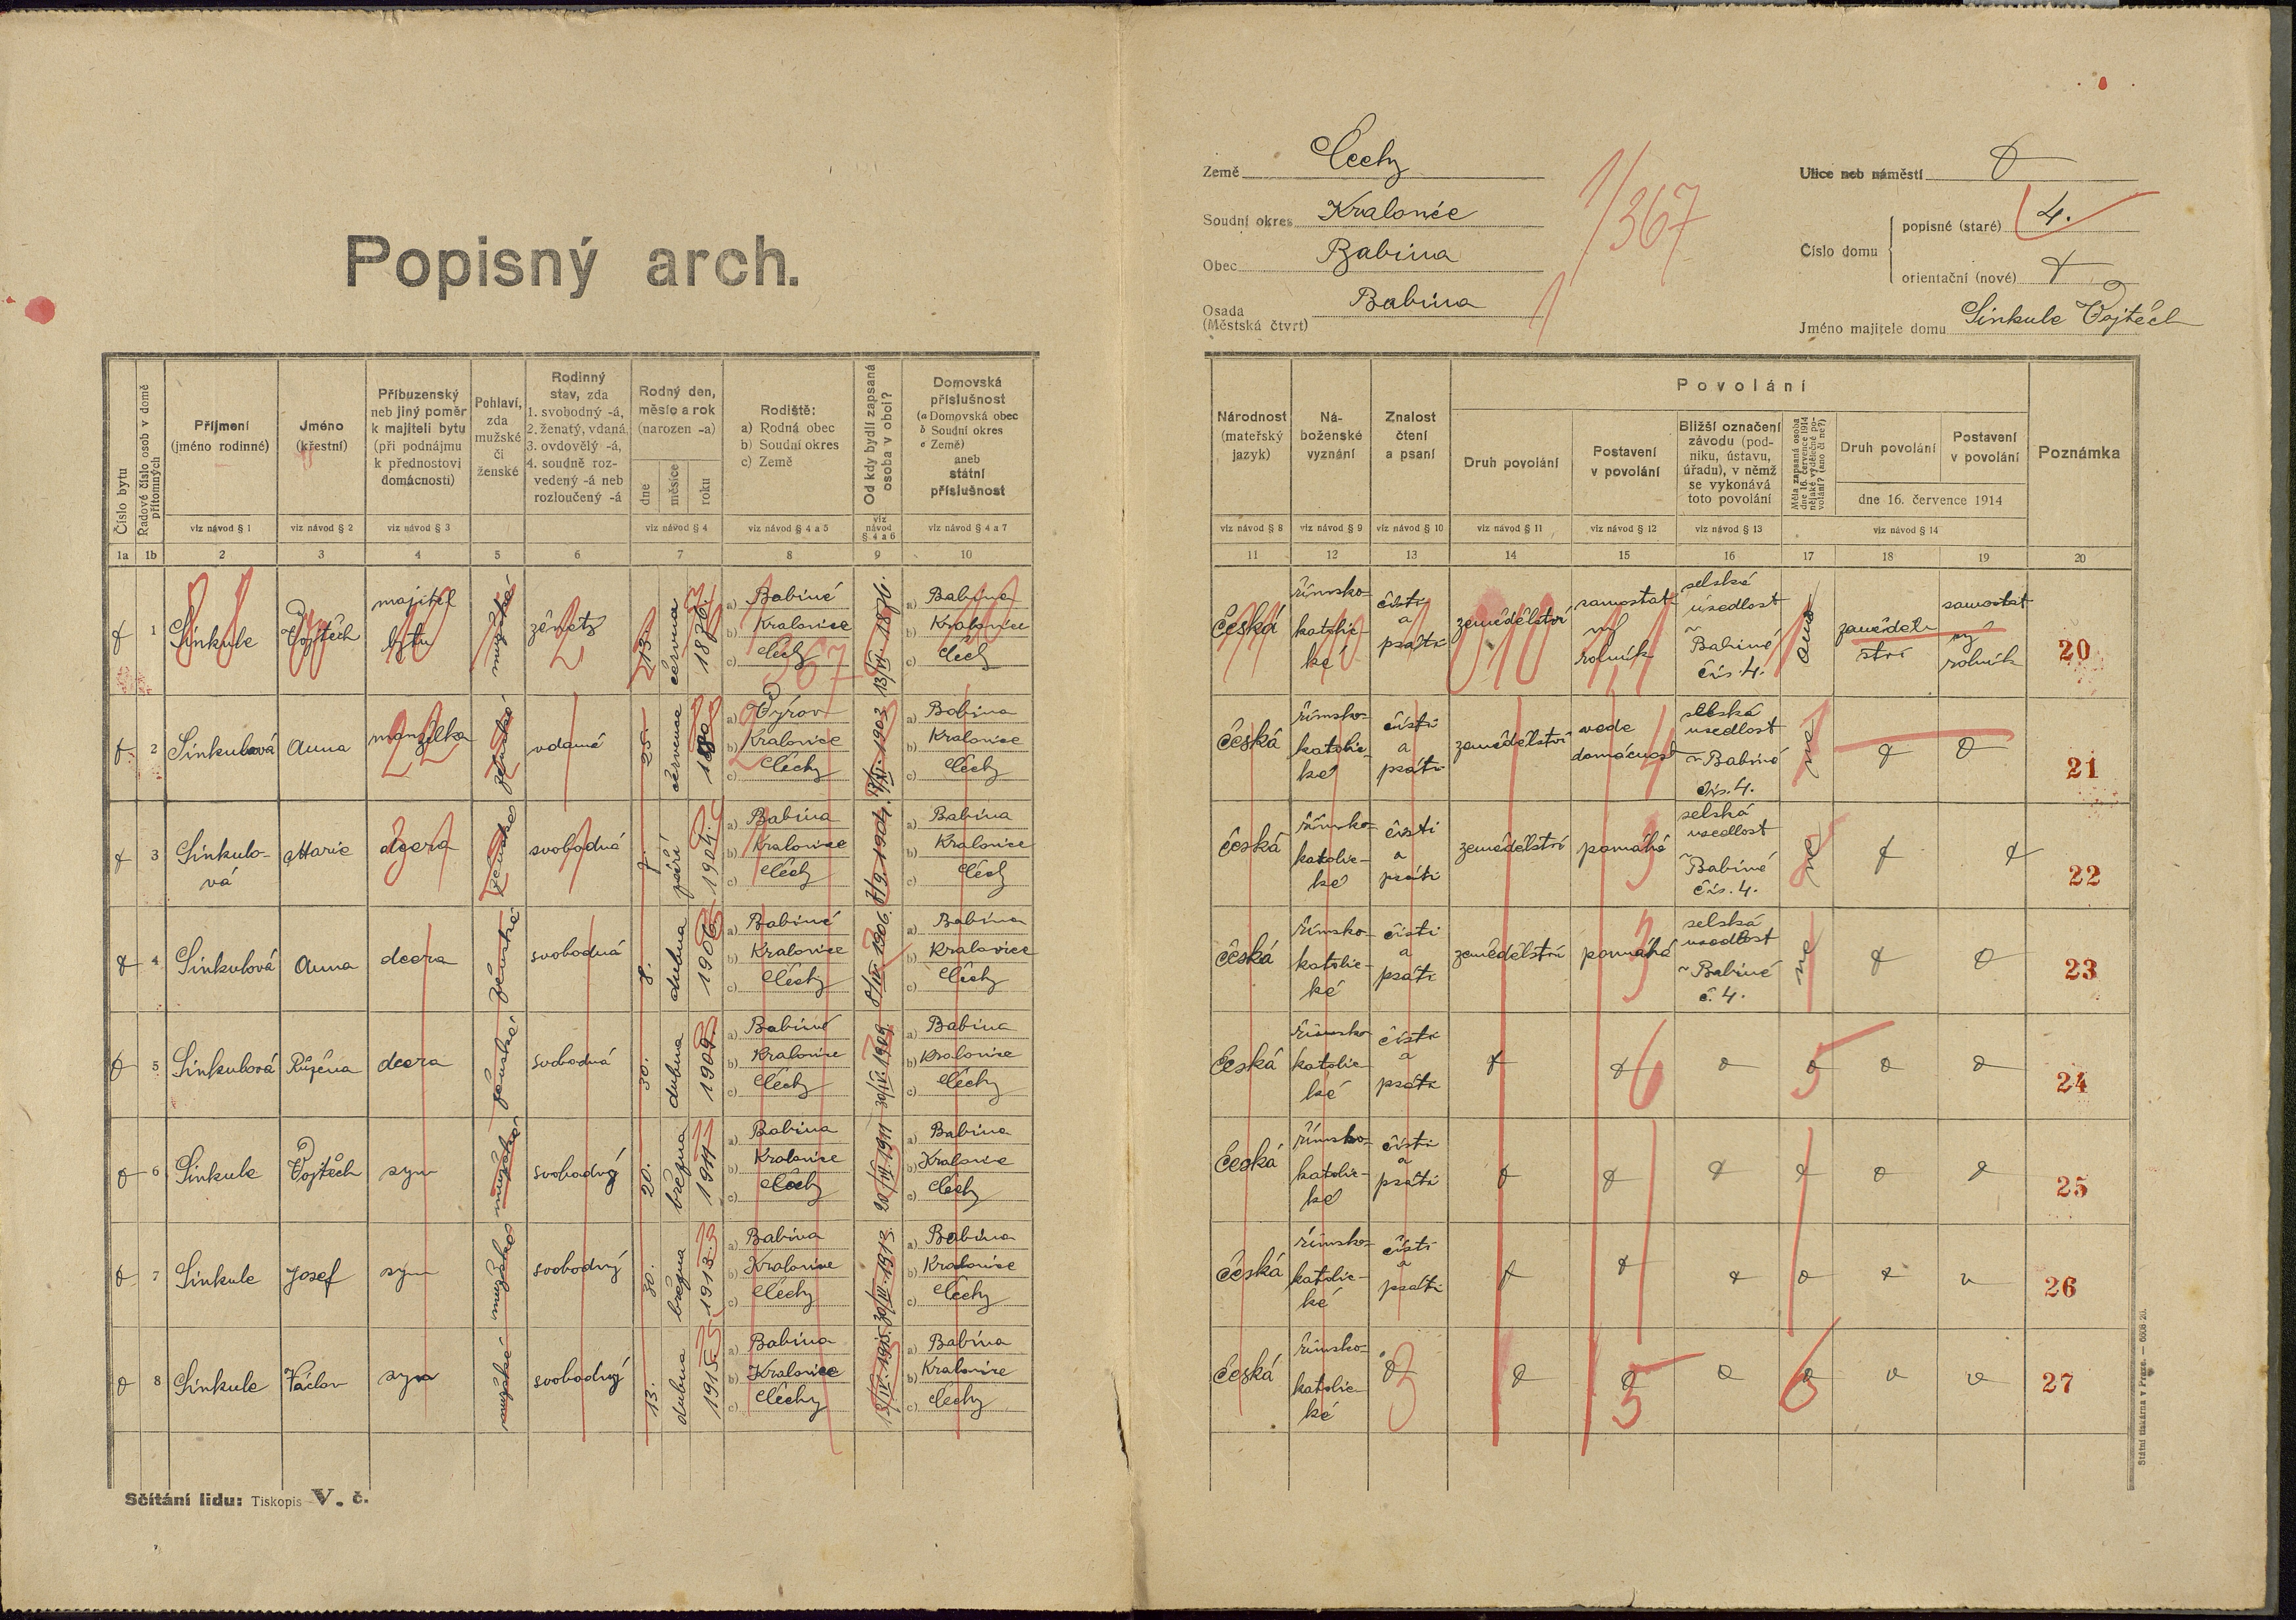 Popisný arch.
Země Čechy
Soudní okres Kralovice
Obec Babina
Osada (Městská čtvrt) Babina
1/367
1
Ulice neb náměstí
Číslo domu
popisné (staré) 4.
orientační (nové)
Jméno majitele domu Sinkule Vojtěch
Číslo bytu
Řadové číslo osob v domě přítomných
Příjmení (jméno rodinné)
Jméno (křestní)
Příbuzenský neb jiný poměr k majiteli bytu (při podnájmu k přednostovi domácnosti)
Pohlaví, zda mužské či ženské
Rodinný stav, zda 1. svobodný -á, 2. ženatý, vdaná, 3. ovdovělý -á, 4. soudně rozvedený -á neb rozloučený -á
Rodný den, měsíc a rok (narozen -a)
dne měsíce roku
Rodiště: a) Rodná obec b) Soudní okres c) Země
Od kdy bydlí zapsaná osoba v obci?
Domovská příslušnost (a Domovská obec b Soudní okres c Země) aneb státní příslušnost
viz návod § 1 viz návod § 2 viz návod § 3 viz návod § 4 viz návod § 4 a 5 viz návod § 4 a 6 viz návod § 4 a 7
1a 1b 2 3 4 5 6 7 8 9 10
Národnost (mateřský jazyk)
Náboženské vyznání
Znalost čtení a psaní
Povolání
Druh povolání
Postavení v povolání
Bližší označení závodu (podniku, ústavu, úřadu), v němž se vykonává toto povolání
Měla zapsaná osoba dne 16. července 1914 nějaké výdělečné povolání? (ano či ne?)
Druh povolání
Postavení v povolání
dne 16. července 1914
Poznámka
viz návod § 8 viz návod § 9 viz návod § 10 viz návod § 11 viz návod § 12 viz návod § 13 viz návod § 14
11 12 13 14 15 16 17 18 19 20
1 Sinkule Vojtěch majitel bytu mužské ženatý 13. června a) Babině b) Kralovice c) Čechy a) Babina b) Kralovice c) Čech
česká římsko-katolické čísti a psáti zemědělství samostatný rolník selská usedlost v Babině čís. 4. ano zemědelství samostatný rolník 20
2 Sinkulová Anna manželka ženské vdaná 25. července a) Výrov b) Kralovice c) Čechy a) Babina b) Kralovice c) Čechy
česká římsko-katolické čísti a psáti zemědělství vede domácnost selská usedlost v Babině čís. 4. ne 21
3 Sinkulová Marie dcera ženské svobodná 7. září 1904. a) Babina b) Kralovice c) Čechy 7/9 1904. a) Babina b) Kralovice c) Čech
česká římsko-katolické čísti a psáti zemědělství pomáhá selská usedlost v Babině čís. 4. ne 22
4 Sinkulová Anna dcera ženské svobodná 8. dubna 1906 a) Babině b) Kralovice c) Čechy 8/IV. 1906. a) Babina b) Kralovice c) Čechy
česká římsko-katolické čísti a psáti zemědělství pomáhá selská usedlost v Babině č. 4. ne 23
5 Sinkulová Růžena dcera ženské svobodná 30. dubna 1909. a) Babině b) Kralovice c) Čechy 30/IV. 1909. a) Babina b) Kralovice c) Čechy
česká římsko-katolické čísti a psáti 6 5 24
6 Sinkule Vojtěch syn mužské svobodný 20. března 1911 a) Babina b) Kralovice c) Čechy 20/III. 1911 a) Babina b) Kralovice c) Čechy
česká římsko-katolické čísti a psáti 25
7 Sinkule Josef syn mužské svobodný 30. března 1913. a) Babina b) Kralovice c) Čechy 30/III. 1913. a) Babina b) Kralovice c) Čechy
česká římsko-katolické čísti a psáti 26
8 Sinkule Václav syn mužské svobodný 13. dubna 1915. a) Babina b) Kralovice c) Čechy 13/IV. 1915. a) Babina b) Kralovice c) Čechy
česká římsko-katolické 3 5 6 27
Sčítání lidu: Tiskopis V. č.
Státní tiskárna v Praze. — 6608-20.